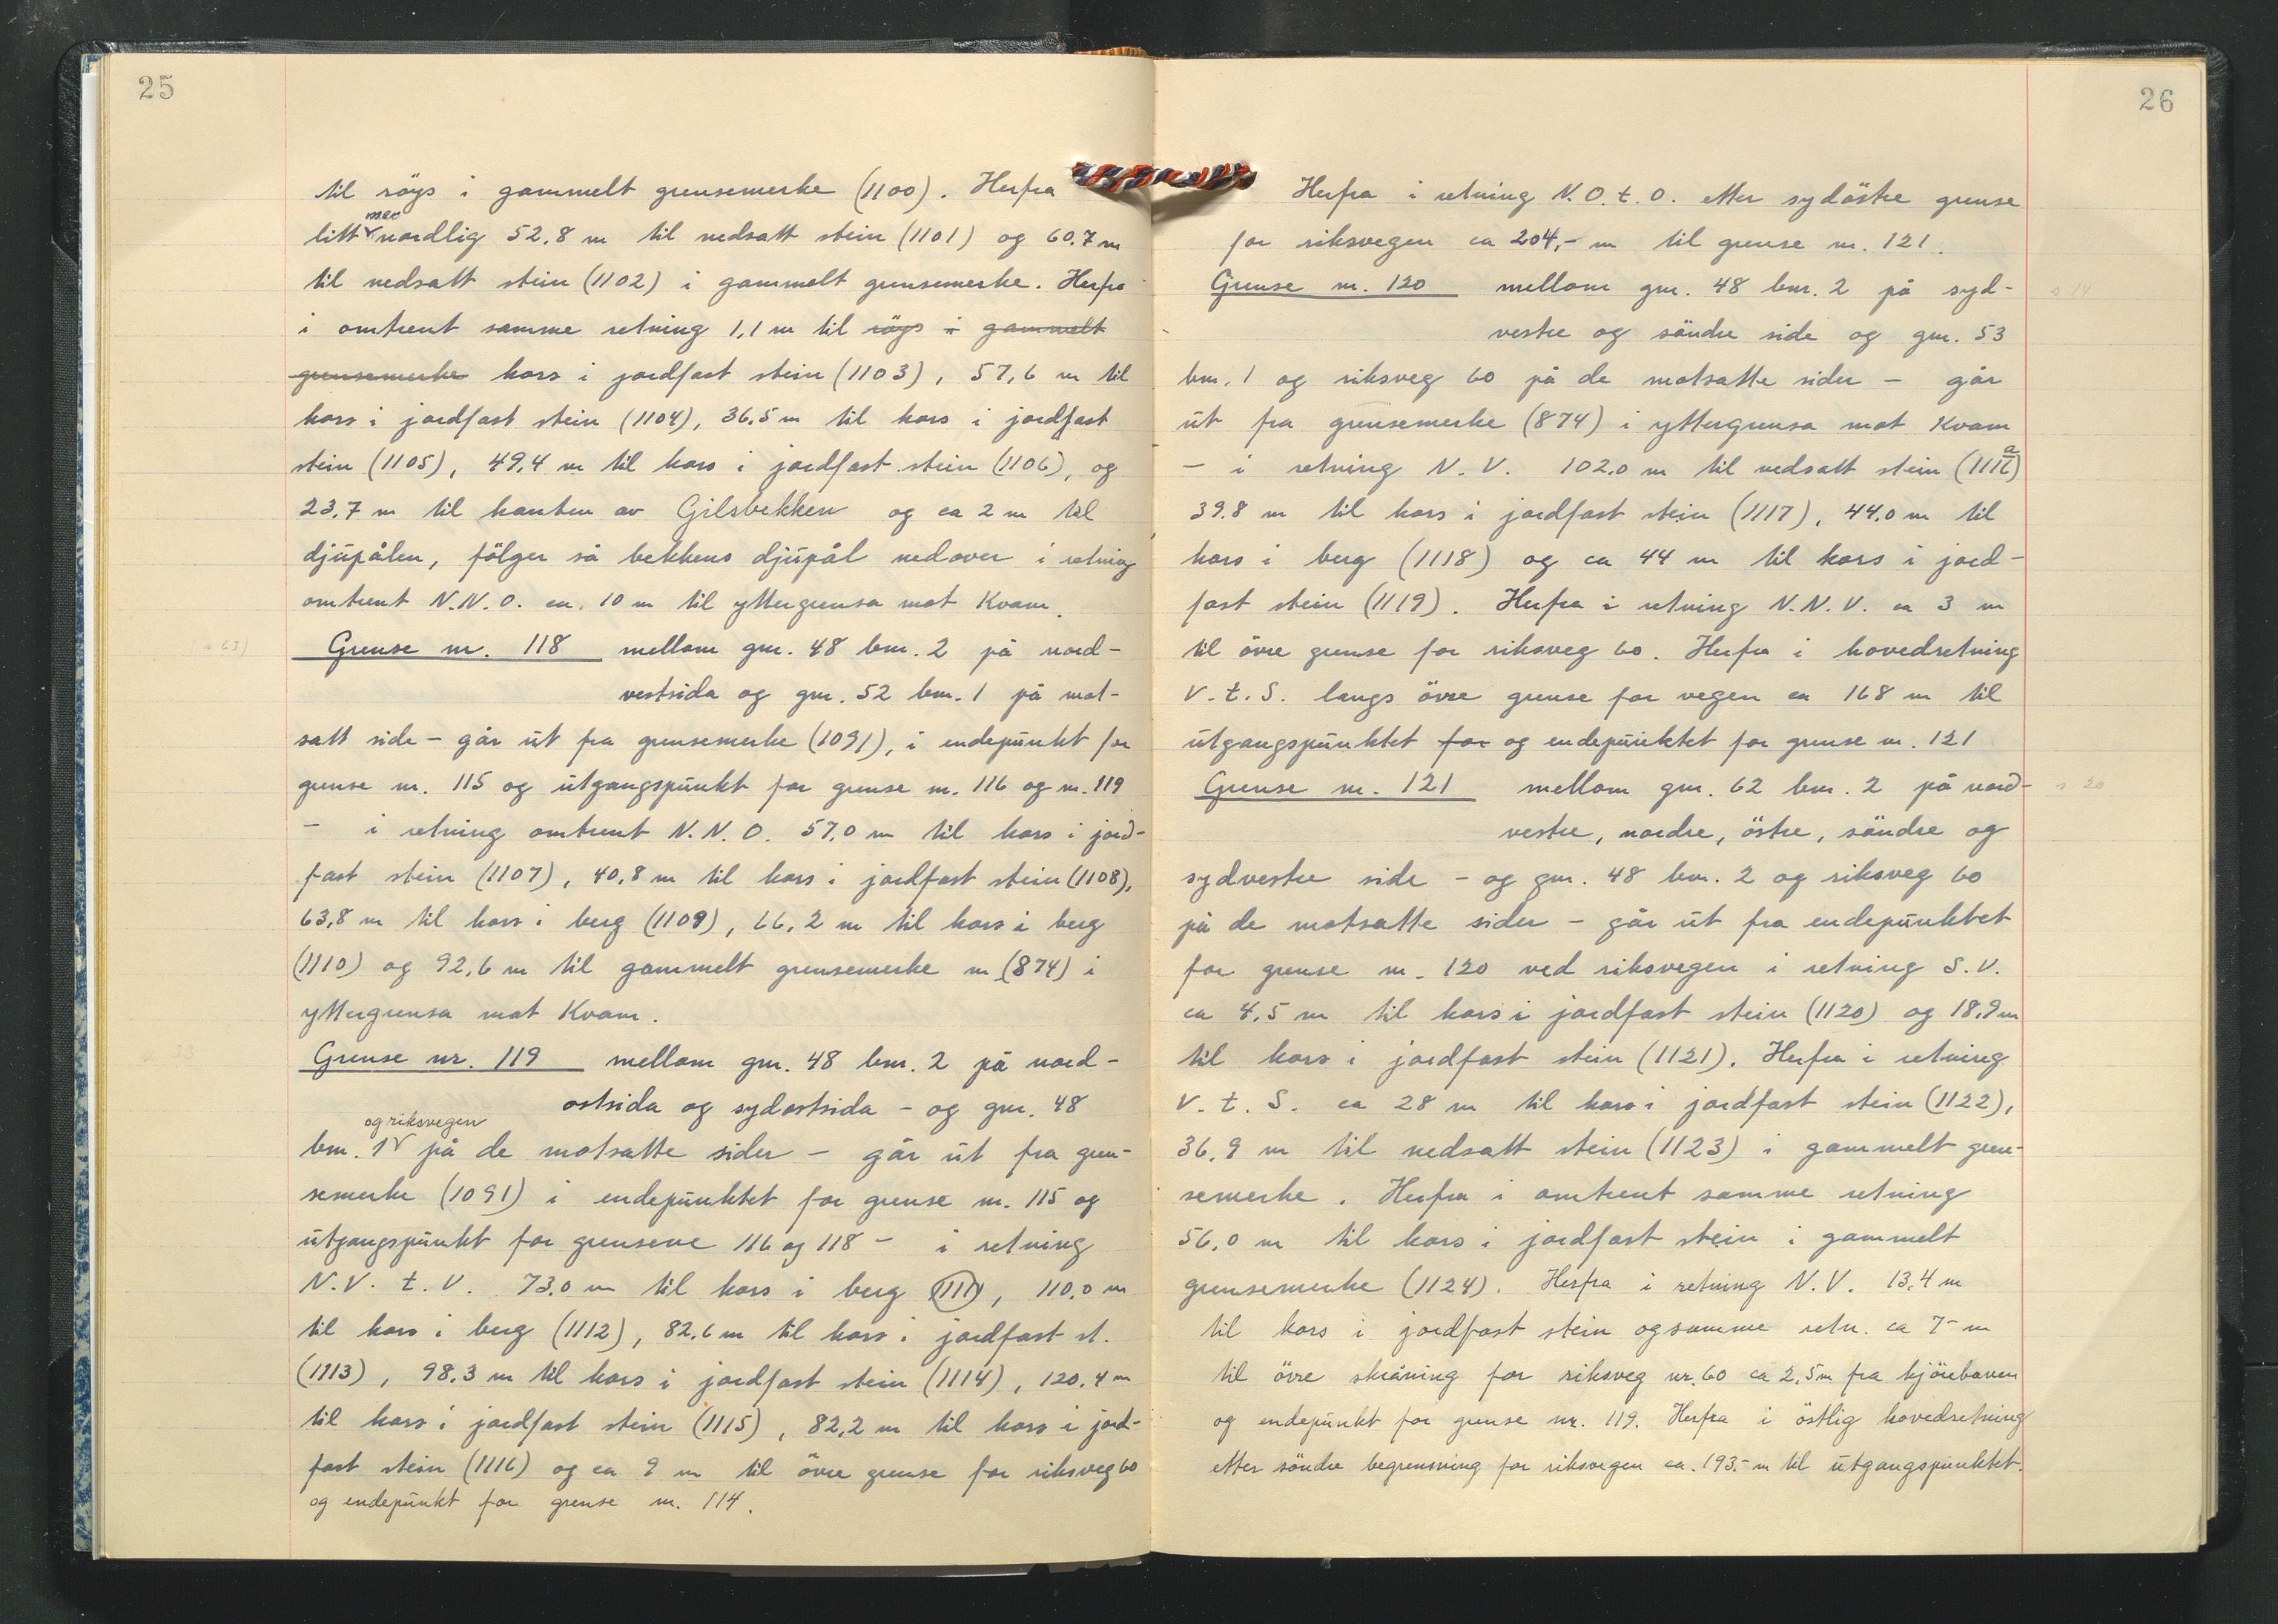 25
til röys i gammelt grensemerke (1100). Herfra
litt mer nordlig 52.8 m til nedsatt stein (1101) og 60.7 m
til nedsatt stein (1102) i gammelt grensemerke. Herfra
i omtrent samme retning 1,1 m til röys i gammelt
grensemerke kors i jordfast stein (1103), 57,6 m til
kors i jordfast stein (1104), 36.5 m til kors i jordfast
stein (1105), 49,4 m til kors i jordfast stein (1106), og
23,7 m til kanten av Gilsbekken og ca 2 m til
djupålen, fölger så bekkens djupål nedover i retning
omtrent N.N.O. ca. 10 m til yttergrensa mot Kvam.
Grense nr. 118 mellom gnr. 48 bnr. 2 på nord-
vestsida og gnr. 52 bnr. 1 på mot-
satt side - går ut fra grensemerke (1091), i endepunkt for
grense nr. 115 og utgangspunkt for grense nr. 116 og nr. 119
- i retning omtrent N.N.O. 57,0 m til kors i jord-
fast stein (1107), 40,8 m til kors i jordfast stein (1108),
63,8 m til kors i berg (1109), 66,2 m til kors i berg
(1110) og 92,6 m til gammelt grensemerke nr (874) i
yttergrensa mot Kvam.
Grense nr. 119 mellom gnr. 48 bnr. 2 på nord-
ostsida og sydostsida - og gnr. 48
bnr. 1 og riksvegen på de motsatte sider - går ut fra gren-
semerke (1091) i endepunktet for grense nr. 115 og
utgangspunkt for grensene 116 og 118 - i retning
N.V. t. V. 73,0 m til kors i berg (1111), 110,0 m
til kors i berg (1112), 82,6 m til kors i jordfast st.
(1113), 98,3 m til kors i jordfast stein (1114), 120,4 m
til kors i jordfast stein (1115), 82,2 m til kors i jord-
fast stein (1116) og ca 9 m til övre grense for riksveg 60
og endepunkt for grense nr. 114.
26
Herfra i retning N.O.t.O. etter sydöstre grense
for riksvegen ca 204,- m til grense nr. 121.
Grense nr. 120 mellom gnr. 48 bnr. 2 på syd-
s 14
vestre og söndre side og gnr. 53
bnr. 1 og riksveg 60 på de motsatte sider - går
ut fra grensemerke (874) i yttergrensa mot Kvam
- i retning N.V. 102.0 m til nedsatt stein (1116a)
39.8 m til kors i jordfast stein (1117), 44,0 m til
kors i berg (1118) og ca 44 m til kors i jord-
fast stein (1119). Herfra i retning N.N.V. ca 3 m
til övre grense for riksveg 60. Herfra i hovedretning
V.t.S. langs övre grense for vegen ca 168 m til
utgangspunktet for og endepunktet for grense nr. 121
Grense nr. 121 mellom gnr. 62 bnr. 2 på nord-
s 20
vestre, nordre, östre, söndre og
sydvestre side - og gnr. 48 bnr. 2 og riksveg 60
på de motsatte sider - går ut fra endepunktet
for grense nr. 120 ved riksvegen i retning S.V.
ca 4,5 m til kors i jordfast stein (1120) og 18,9 m
til kors i jordfast stein (1121). Herfra i retning
V.t.S. ca 28 m til kors i jordfast stein (1122),
36,9 m til nedsatt stein (1123) i gammelt gren-
semerke. Herfra i omtrent samme retning
56,0 m til kors i jordfast stein i gammelt
grensemerke (1124). Herfra i retning N.V. 13,4 m
til kors i jordfast stein og samme retn. ca 7- m
til övre skråning for riksveg nr. 60 ca 2,5 m fra kjörebanen
og endepunkt for grense nr. 119. Herfra i östlig hovedretning
etter söndre begrensning for riksvegen ca. 193,- m til utgangspunktet.